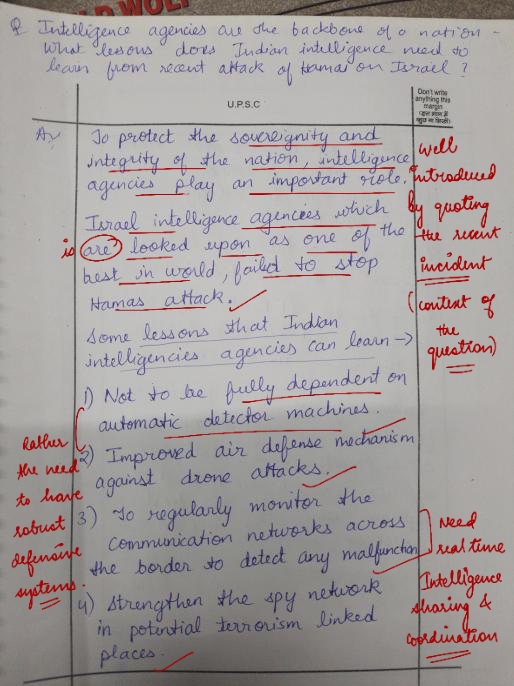 RED WOLF
Q. Intelligence agencies are the backbone of a nation -
What lessons does Indian intelligence need to
learn from recent attack of Hamas on Israel ?
U.P.S.C
Don't write
anything this
margin
Ans
To protect the sovereignity and
integrity of the nation, intelligence
agencies play an important role.
Israel intelligence agencies which
is
are looked upon as one of the
best in world, failed to stop
Hamas attack.
Some lessons that Indian
intelligencies agencies can learn →
1) Not to be fully dependent on
automatic detector machines.
2) Improved air defense mechanism
against drone attacks.
3) To regularly monitor the
communication networks across
the border to detect any malfunction
4) Strengthen the spy network
in potential terrorism linked
places.
Well
introduced
by quoting
the recent
incident
(context of
the
question)
Rather
the need
to have
robust
defensive
systems.
Need
real time
Intelligence
sharing &
coordination